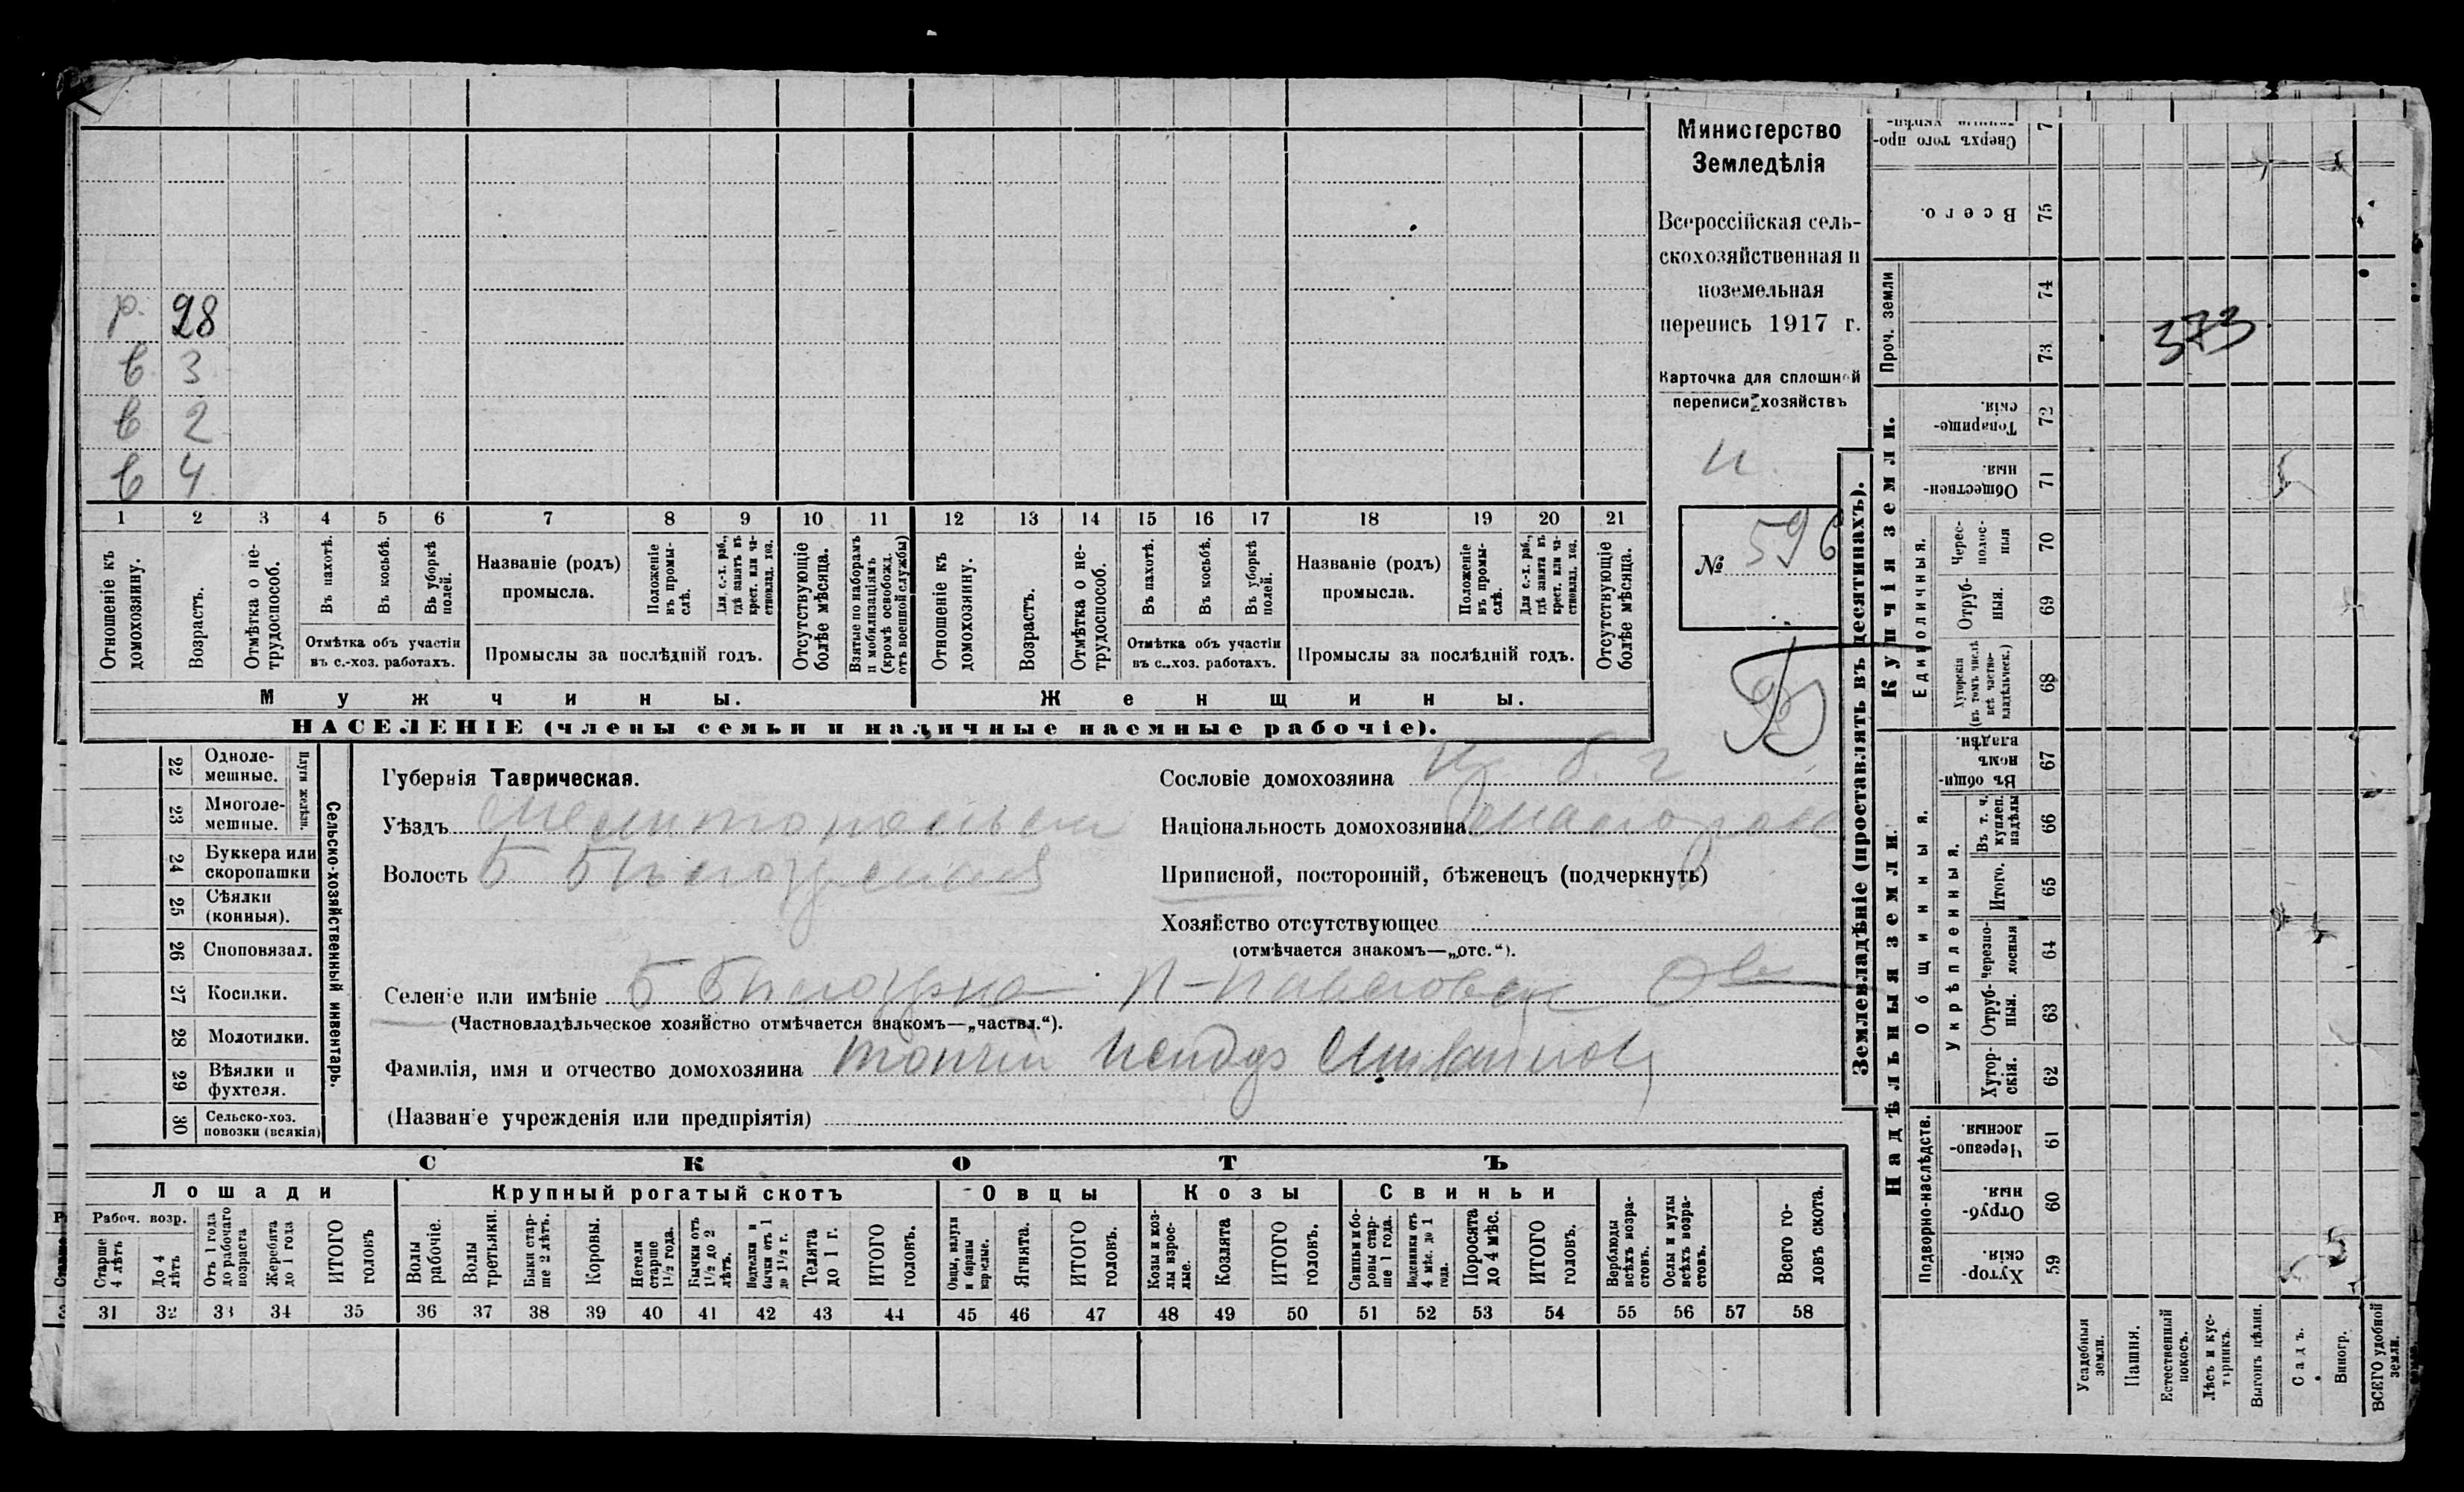 р. 28
в 3
в 2
в 4
1 2 3 4 5 6 7 8 9 10 11 12 13 14 15 16 17 18 19 20 21
Отношеніе къ домохозяину.
Возрастъ.
Отмѣтка о не-трудоспособ.
Въ пахотѣ.
Въ косьбѣ.
Въ уборкѣ полей.
Отмѣтка объ участіи
въ с.-хоз. работахъ.
Названіе (родъ)
промысла.
Положеніе въ промы-слѣ.
Для с.-х. раб., гдѣ занятъ въ крест. или ча-стновлад. хоз.
Промыслы за послѣдній годъ.
Отсутствующіе болѣе мѣсяца.
Взятые по наборамъ и мобилизаціямъ (кромѣ освобожд. отъ военной службы)
Отношеніе къ домохозяину.
Возрастъ.
Отмѣтка о не-трудоспособ.
Въ пахотѣ.
Въ косьбѣ.
Въ уборкѣ полей.
Отмѣтка объ участіи
въ с.-хоз. работахъ.
Названіе (родъ)
промысла.
Положеніе въ промы-слѣ.
Для с.-х. раб., гдѣ занята въ крест. или ча-стновлад. хоз.
Промыслы за послѣдній годъ.
Отсутствующіе болѣе мѣсяца.
Мужчины. Женщины.
НАСЕЛЕНІЕ (члены семьи и наличные наемные рабочіе).
Министерство
Земледѣлія
Всероссійская сель-
скохозяйственная и
поземельная
перепись 1917 г.
Карточка для сплошной
переписи хозяйствъ
№ 596
22 Одноле-мешные.
23 Многоле-мешные.
Плуги желѣзн.
24 Буккера или скоропашки
25 Сѣялки (конныя).
26 Сноповязал.
27 Косилки.
28 Молотилки.
29 Вѣялки и фухтеля.
30 Сельско-хоз. повозки (всякія)
Сельско-хозяйственный инвентарь.
Губернія Таврическая.
Уѣздъ Мелитопольск
Волость Б Бѣлозерская
Селеніе или имѣніе Б Бѣлозерка
(Частновладѣльческое хозяйство отмѣчается знакомъ—„частвл.“).
Фамилія, имя и отчество домохозяина
(Названіе учрежденія или предпріятія)
Сословіе домохозяина
Національность домохозяина
Приписной, посторонній, бѣженецъ (подчеркнуть)
Хозяйство отсутствующее
(отмѣчается знакомъ—„отс.“).
СКОТЪ
Лошади Крупный рогатый скотъ Овцы Козы Свиньи
Рабоч. возр.
Старше 4 лѣтъ
До 4 лѣтъ
Отъ 1 года до рабочаго возраста
Жеребята до 1 года
ИТОГО головъ
Волы рабочіе.
Волы третьяки.
Быки стар-ше 2 лѣтъ.
Коровы.
Нетели старше 1½ года.
Бычки отъ 1½ до 2 лѣтъ.
Подтелки и бычки отъ 1 до 1½ г.
Телята до 1 г.
ИТОГО головъ.
Овцы, валухи и бараны взрослые.
Ягнята.
ИТОГО головъ.
Козы и коз-лы взрос-лые.
Козлята
ИТОГО головъ.
Свиньи и бо-ровы стар-ше 1 года.
Подсвинки отъ 4 мѣс. до 1 года.
Поросята до 4 мѣс.
ИТОГО головъ.
Верблюды всѣхъ возра-стовъ.
Ослы и мулы всѣхъ возра-стовъ.
Всего го-ловъ скота.
31 32 33 34 35 36 37 38 39 40 41 42 43 44 45 46 47 48 49 50 51 52 53 54 55 56 57 58
Землевладѣніе (проставлять въ десятинахъ).
Сверхъ того про-
7
Всего. 75
Проч. земли 74 73
Купчія земли.
Товарище-скія. 72
Обществен-ныя. 71
Единоличныя.
Черес-полос-ныя 70
Отруб-ныя. 69
Хуторскія (въ томъ числѣ всѣ частно-владѣльческ.) 68
Надѣльныя земли.
Общинныя.
Въ общи-номъ владѣн. 67
Укрѣпленныя.
Въ т. ч. куплен. надѣлы 66
Итого. 65
Черезпо-лосныя 64
Отруб-ныя. 63
Хутор-скія. 62
Подворно-наслѣдств.
Черезпо-лосныя. 61
Отруб-ныя. 60
Хутор-скія. 59
373
Усадебныя земли.
Пашня.
Естественный покосъ.
Лѣсъ и кус-тарникъ.
Выгонъ цѣлин.
Садъ.
Виногр.
ВСЕГО удобной земли.